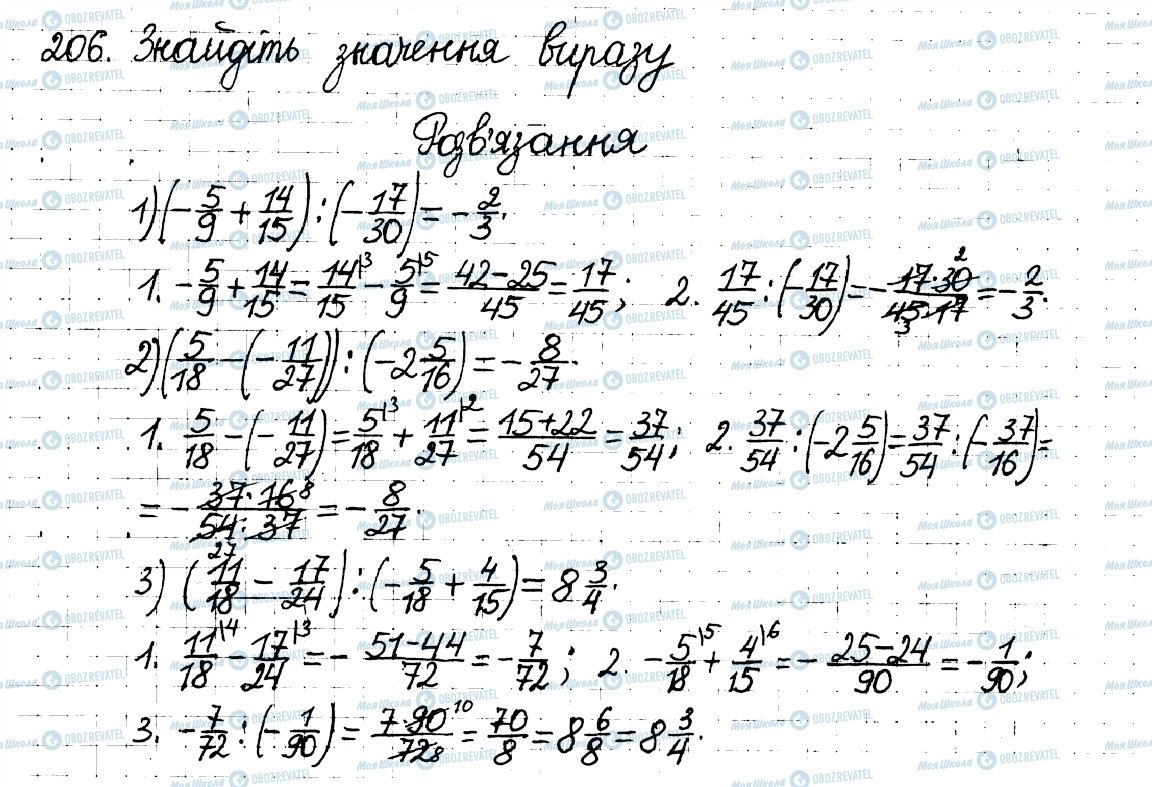 206. Знайдіть значення виразу
Розв'язання
1) (-5/9 + 14/15) : (-17/30) = -2/3.
1. -5/9 + 14/15 = 14/15\3 - 5/9\5 = (42-25)/45 = 17/45; 2. 17/45 : (-17/30) = -(17·30 2)/(45 3·17) = -2/3.
2) (5/18 - (-11/27)) : (-2 5/16) = -8/27.
1. 5/18 - (-11/27) = 5/18\3 + 11/27\2 = (15+22)/54 = 37/54; 2. 37/54 : (-2 5/16) = 37/54 : (-37/16) =
= -(37·16 8)/(54 27·37) = -8/27.
3) (11/18 - 17/24) : (-5/18 + 4/15) = 8 3/4.
1. 11/18\4 - 17/24\3 = -(51-44)/72 = -7/72; 2. -5/18\5 + 4/15\6 = -(25-24)/90 = -1/90;
3. -7/72 : (-1/90) = (7·90 10)/(72 8) = 70/8 = 8 6/8 = 8 3/4.
Моя Школа OBOZREVATEL